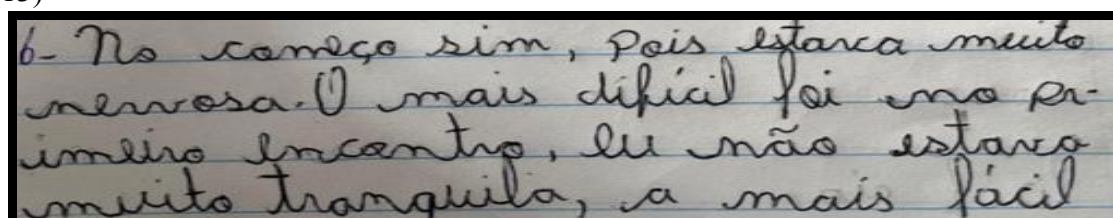 6- No começo sim, pois estava muito
nervosa. O mais difícil foi no pr-
imeiro encontro, eu não estava
muito tranquila, a mais fácil